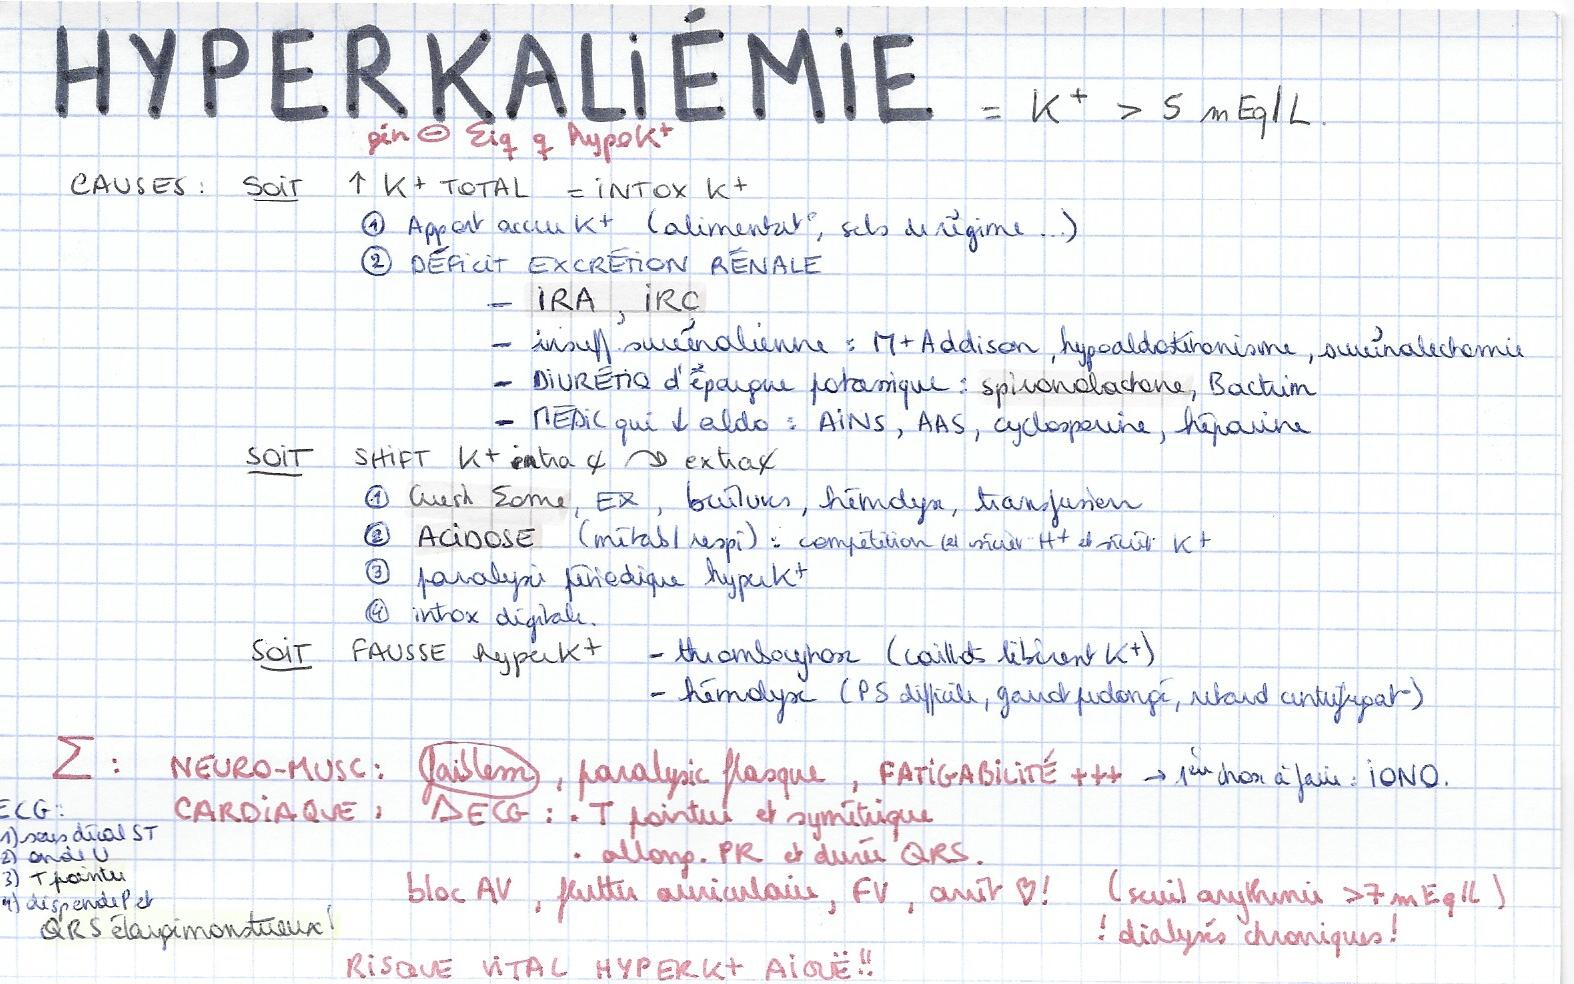 HYPERKALIÉMIE = K+ > 5 mEq/L.
gén ⊖ Σiq q hypoK+
CAUSES : SOIT ↑ K+ TOTAL = INTOX K+
① Apport accru K+ (alimentat°, sels de régime ...)
② DÉFICIT EXCRÉTION RÉNALE
- IRA, IRC
- insuff surrénalienne : M+ Addison, hypoaldostéronisme, surrénalectomie
- DIURÉTIQ d'épargne potassique : spironolactone, Bactrim
- MÉDIC qui ↓ aldo : AINS, AAS, cyclosporine, héparine
SOIT SHIFT K+ intra ¢ → extra¢
① Crush Σome, EX, brûlures, hémolyse, transfusion
② ACIDOSE (métab/respi) : compétition sécrét H+ et sécrét K+
③ paralysie périodique hyperK+
④ intox digitale.
SOIT FAUSSE hyperK+ - thrombocytose (caillots libèrent K+)
- hémolyse (PS difficile, garrot prolongé, retard centrifugat°)
Σ : NEURO-MUSC : faiblesse, paralysie flasque, FATIGABILITÉ +++ → 1ère chose à faire : IONO.
CARDIAQUE : ΔECG : . T pointue et symétrique
. allong. PR et durée QRS.
bloc AV, flutter auriculaire, FV, arrêt ♡! (seuil arythmie >7 mEq/L)
! dialysés chroniques!
ECG :
1) sous décal ST
2) onde U
3) T pointu
4) dispende P et
QRS élargi monstrueux!
RISQUE VITAL HYPERK+ AIGUË!!